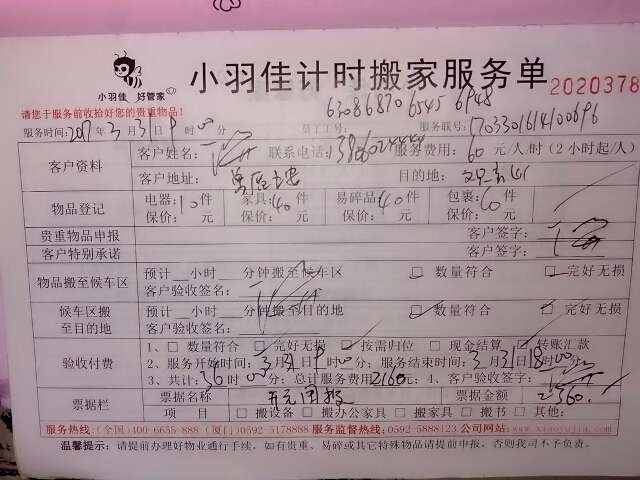 小羽佳 好管家
小羽佳计时搬家服务单
2020378
请您于服务前收拾好您的贵重物品!
63086870 6545 6948
服务时间:2017年3月31日9时00分 员工工号: 服务联号:1703301614100696
客户资料
客户姓名: 联系电话: 服务费用:60元/人/时(2小时起/人)
客户地址: 目的地:
物品登记
电器:10件 家具:40件 易碎品:40件 包裹:60件
保价: 元 保价: 元 保价: 元 保价: 元
贵重物品申报 客户签字:
客户特别承诺 客户签字:
物品搬至候车区
预计__小时__分钟搬至候车区 □数量符合 □完好无损
客户验收签名:
候车区搬至目的地
预计__小时__分钟搬至目的地 □数量符合 □完好无损
客户验收签名:
验收付费
1、□数量符合 □完好无损 □按需归位 □现金结算 □转账汇款
2、服务开始时间:3月31日9时00分;服务结束时间:3月31日18时00分
3、共计:36时00分;总计服务费用2160元;4、客户验收签字:
票据栏
票据名称 票据金额 2360.
项 目 □搬设备 □搬办公家具 □搬家具 □搬书 □其他:
服务热线:(全国)400-6655-888 (厦门)0592-5178888 服务监督热线:0592-5888123 公司网站:www.xiaoyujia.com
温馨提示:请提前办理好物业通行手续。如有贵重、易碎或其它特殊物品请提前申报,否则我司不予负责。